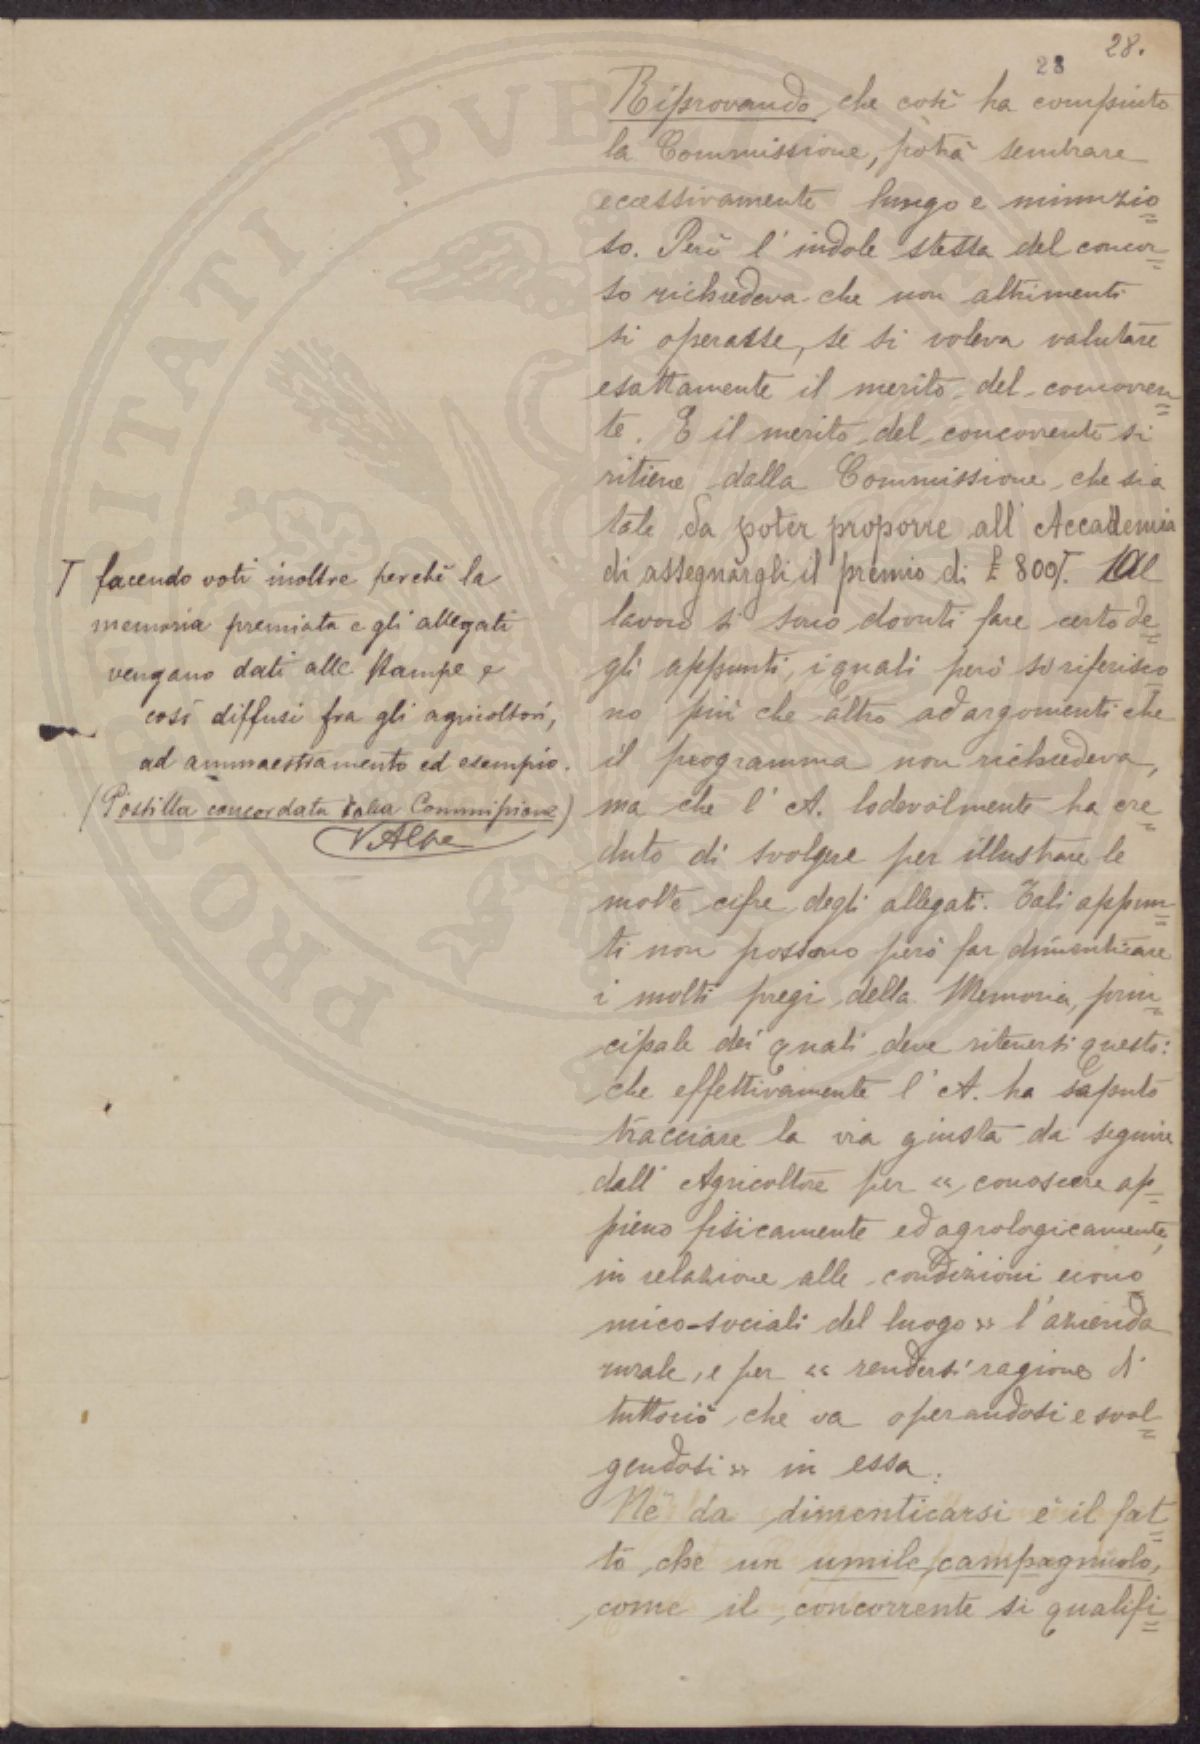 28.
28
Riprovando, che così ha compiuto
la Commissione, potrà sembrare
eccessivamente lungo e minuzio=
so. Però l'indole stessa del concor=
so richiedeva che non altrimenti
si operasse, se si voleva valutare
esattamente il merito del concorren=
te. E il merito del concorrente si
ritiene dalla Commissione che sia
tale da poter proporre all'Accademia
di assegnargli il premio di £ 800 T. Al
lavoro si sono dovuti fare certo de=
gli appunti, i quali però si riferisco=
no più che altro ad argomenti che
il programma non richiedeva,
ma che l'A. lodevolmente ha cre=
duto di svolgere per illustrare le
molte cifre degli allegati. Tali appun=
ti non possono però far dimenticare
i molti pregi della Memoria, prin=
cipale dei quali deve ritenersi questo:
che effettivamente l'A. ha saputo
tracciare la via giusta da seguire
dall'Agricoltore per « conoscere ap=
pieno fisicamente ed agrologicamente,
in relazione alle condizioni econo=
mico-sociali del luogo » l'azienda
rurale, e per « rendersi ragione di
tuttociò che va operandosi e svol=
gendosi » in essa.
Nè da dimenticarsi è il fat=
to che un umile campagnuolo,
come il concorrente si qualifi=
T facendo voti inoltre perchè la
memoria premiata e gli allegati
vengano dati alle stampe e
così diffusi fra gli agricoltori,
ad ammaestramento ed esempio.
(Postilla concordata dalla Commissione)
V. Alpe
PROPRITATI PVBLIC